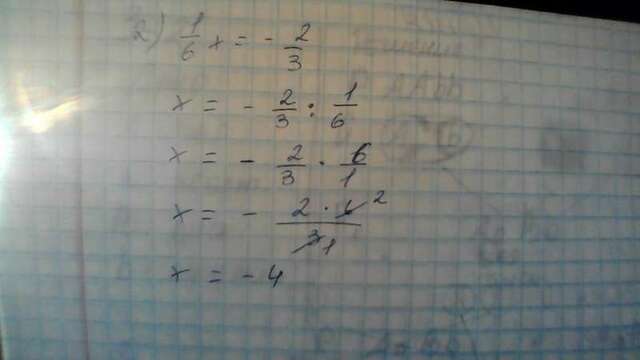 2) 1/6 x = - 2/3
x = - 2/3 : 1/6
x = - 2/3 · 6/1
x = - 2 · 6 2 / 3 1
x = - 4